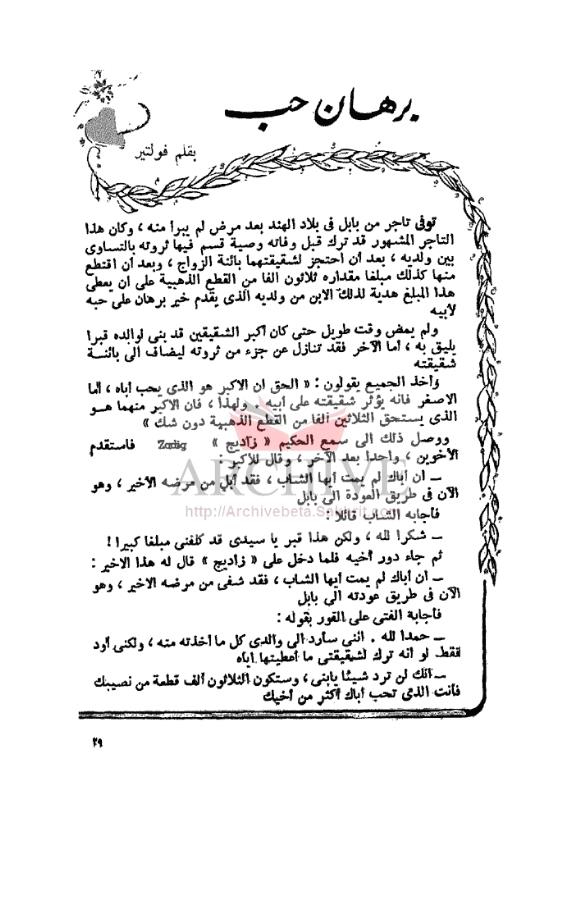 برهان حب
بقلم فولتير
توفى تاجر من بابل فى بلاد الهند بعد مرض لم يبرأ منه ، وكان هذا
التاجر المشهور قد ترك قبل وفاته وصية قسم فيها ثروته بالتساوى
بين ولديه ، بعد أن احتجز لشقيقتهما بائنة الزواج ، وبعد أن اقتطع
منها كذلك مبلغا مقداره ثلاثون ألفا من القطع الذهبية على ان يعطى
هذا المبلغ هدية لذلك الابن من ولديه الذى يقدم خير برهان على حبه
لأبيه
ولم يمض وقت طويل حتى كان أكبر الشقيقين قد بنى لوالده قبرا
يليق به ، أما الآخر فقد تنازل عن جزء من ثروته ليضاف الى بائنة
شقيقته
وأخذ الجميع يقولون : « الحق ان الاكبر هو الذى يحب أباه ، أما
الاصغر فانه يؤثر شقيقته على أبيه . ولهذا ، فان الاكبر منهما هو
الذى يستحق الثلاثين ألفا من القطع الذهبية دون شك »
ووصل ذلك الى سمع الحكيم « زاديج » Zadig فاستقدم
الأخوين ، واحدا بعد الآخر ، وقال للأكبر :
ــ ان أباك لم يمت أيها الشاب ، فقد أبل من مرضه الأخير ، وهو
الآن فى طريق العودة الى بابل
فأجابه الشاب قائلا :
ــ شكرا لله ، ولكن هذا قبر يا سيدى قد كلفنى مبلغا كبيرا !
ثم جاء دور أخيه فلما دخل على « زاديج » قال له هذا الاخير :
ــ ان أباك لم يمت أيها الشاب ، فقد شفى من مرضه الاخير ، وهو
الآن فى طريق عودته الى بابل
فأجابة الفتى على الفور بقوله :
ــ حمدا لله . اننى سأرد الى والدى كل ما أخذته منه ، ولكنى أود
فقط لو أنه ترك لشقيقتى ما أعطيتها أياه
ــ انك لن ترد شيئا يابنى ، وستكون الثلاثون ألف قطعة من نصيبك
فأنت الذى تحب أباك أكثر من أخيك
٢٩
ARCHIVE
http://Archivebeta.Sakhrit.com